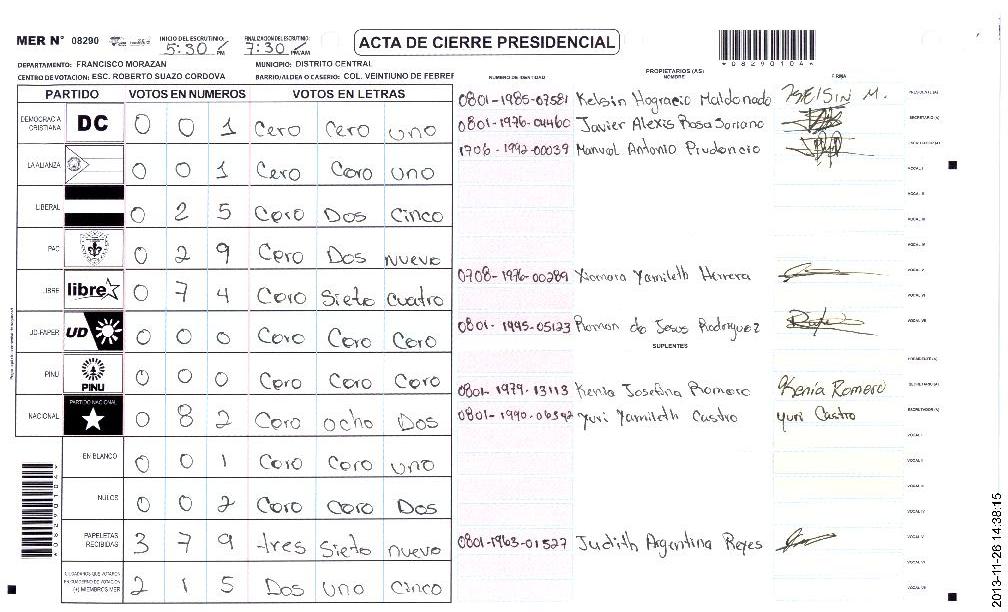 MER N° 08290 INICIO DEL ESCRUTINIO: 5:30 PM FINALIZACION DEL ESCRUTINIO: 7:30 PM/AM
ACTA DE CIERRE PRESIDENCIAL
*08290104*
DEPARTAMENTO: FRANCISCO MORAZAN MUNICIPIO: DISTRITO CENTRAL
CENTRO DE VOTACION: ESC. ROBERTO SUAZO CORDOVA BARRIO/ALDEA O CASERIO: COL. VEINTIUNO DE FEBRER
NUMERO DE IDENTIDAD PROPIETARIOS (AS) NOMBRE FIRMA
PARTIDO VOTOS EN NUMEROS VOTOS EN LETRAS
DEMOCRACIA CRISTIANA DC 0 0 1 Cero Cero uno
LA ALIANZA 0 0 1 Cero Cero uno
LIBERAL 0 2 5 Cero Dos Cinco
PAC 0 2 9 Cero Dos nueve
LIBRE libre 0 7 4 Cero Siete cuatro
UD-FAPER UD 0 0 0 Cero Cero Cero
PINU PINU 0 0 0 Cero Cero Cero
NACIONAL PARTIDO NACIONAL 0 8 2 Cero ocho Dos
EN BLANCO 0 0 1 Cero Cero uno
NULOS 0 0 2 Cero Cero Dos
PAPELETAS RECIBIDAS 3 7 9 tres Siete nueve
CIUDADANOS QUE VOTARON EN CUADERNO DE VOTACION (+) MIEMBROS MER 2 1 5 Dos uno Cinco
0801-1985-07581 Kelsin Hogracio Maldonado KELSIN M. PRESIDENTE (A)
0801-1976-04460 Javier Alexis Rosa Soriano SECRETARIO (A)
1706-1992-00039 Manuel Antonio Prudencio ESCRUTADOR (A)
VOCAL I
VOCAL II
VOCAL III
VOCAL IV
0708-1976-00289 Xiomara Yamileth Herrera VOCAL V
VOCAL VI
0801-1995-05123 Ramon de Jesus Rodriguez VOCAL VII
SUPLENTES
PRESIDENTE (A)
0801-1979-13113 Kenia Josefina Romero Kenia Romero SECRETARIO (A)
0801-1990-06592 Yuri Yamileth Castro Yuri Castro ESCRUTADOR (A)
VOCAL I
VOCAL II
VOCAL III
VOCAL IV
0801-1963-01527 Judith Argentina Reyes VOCAL V
VOCAL VI
VOCAL VII
2013-11-26 14:38:15